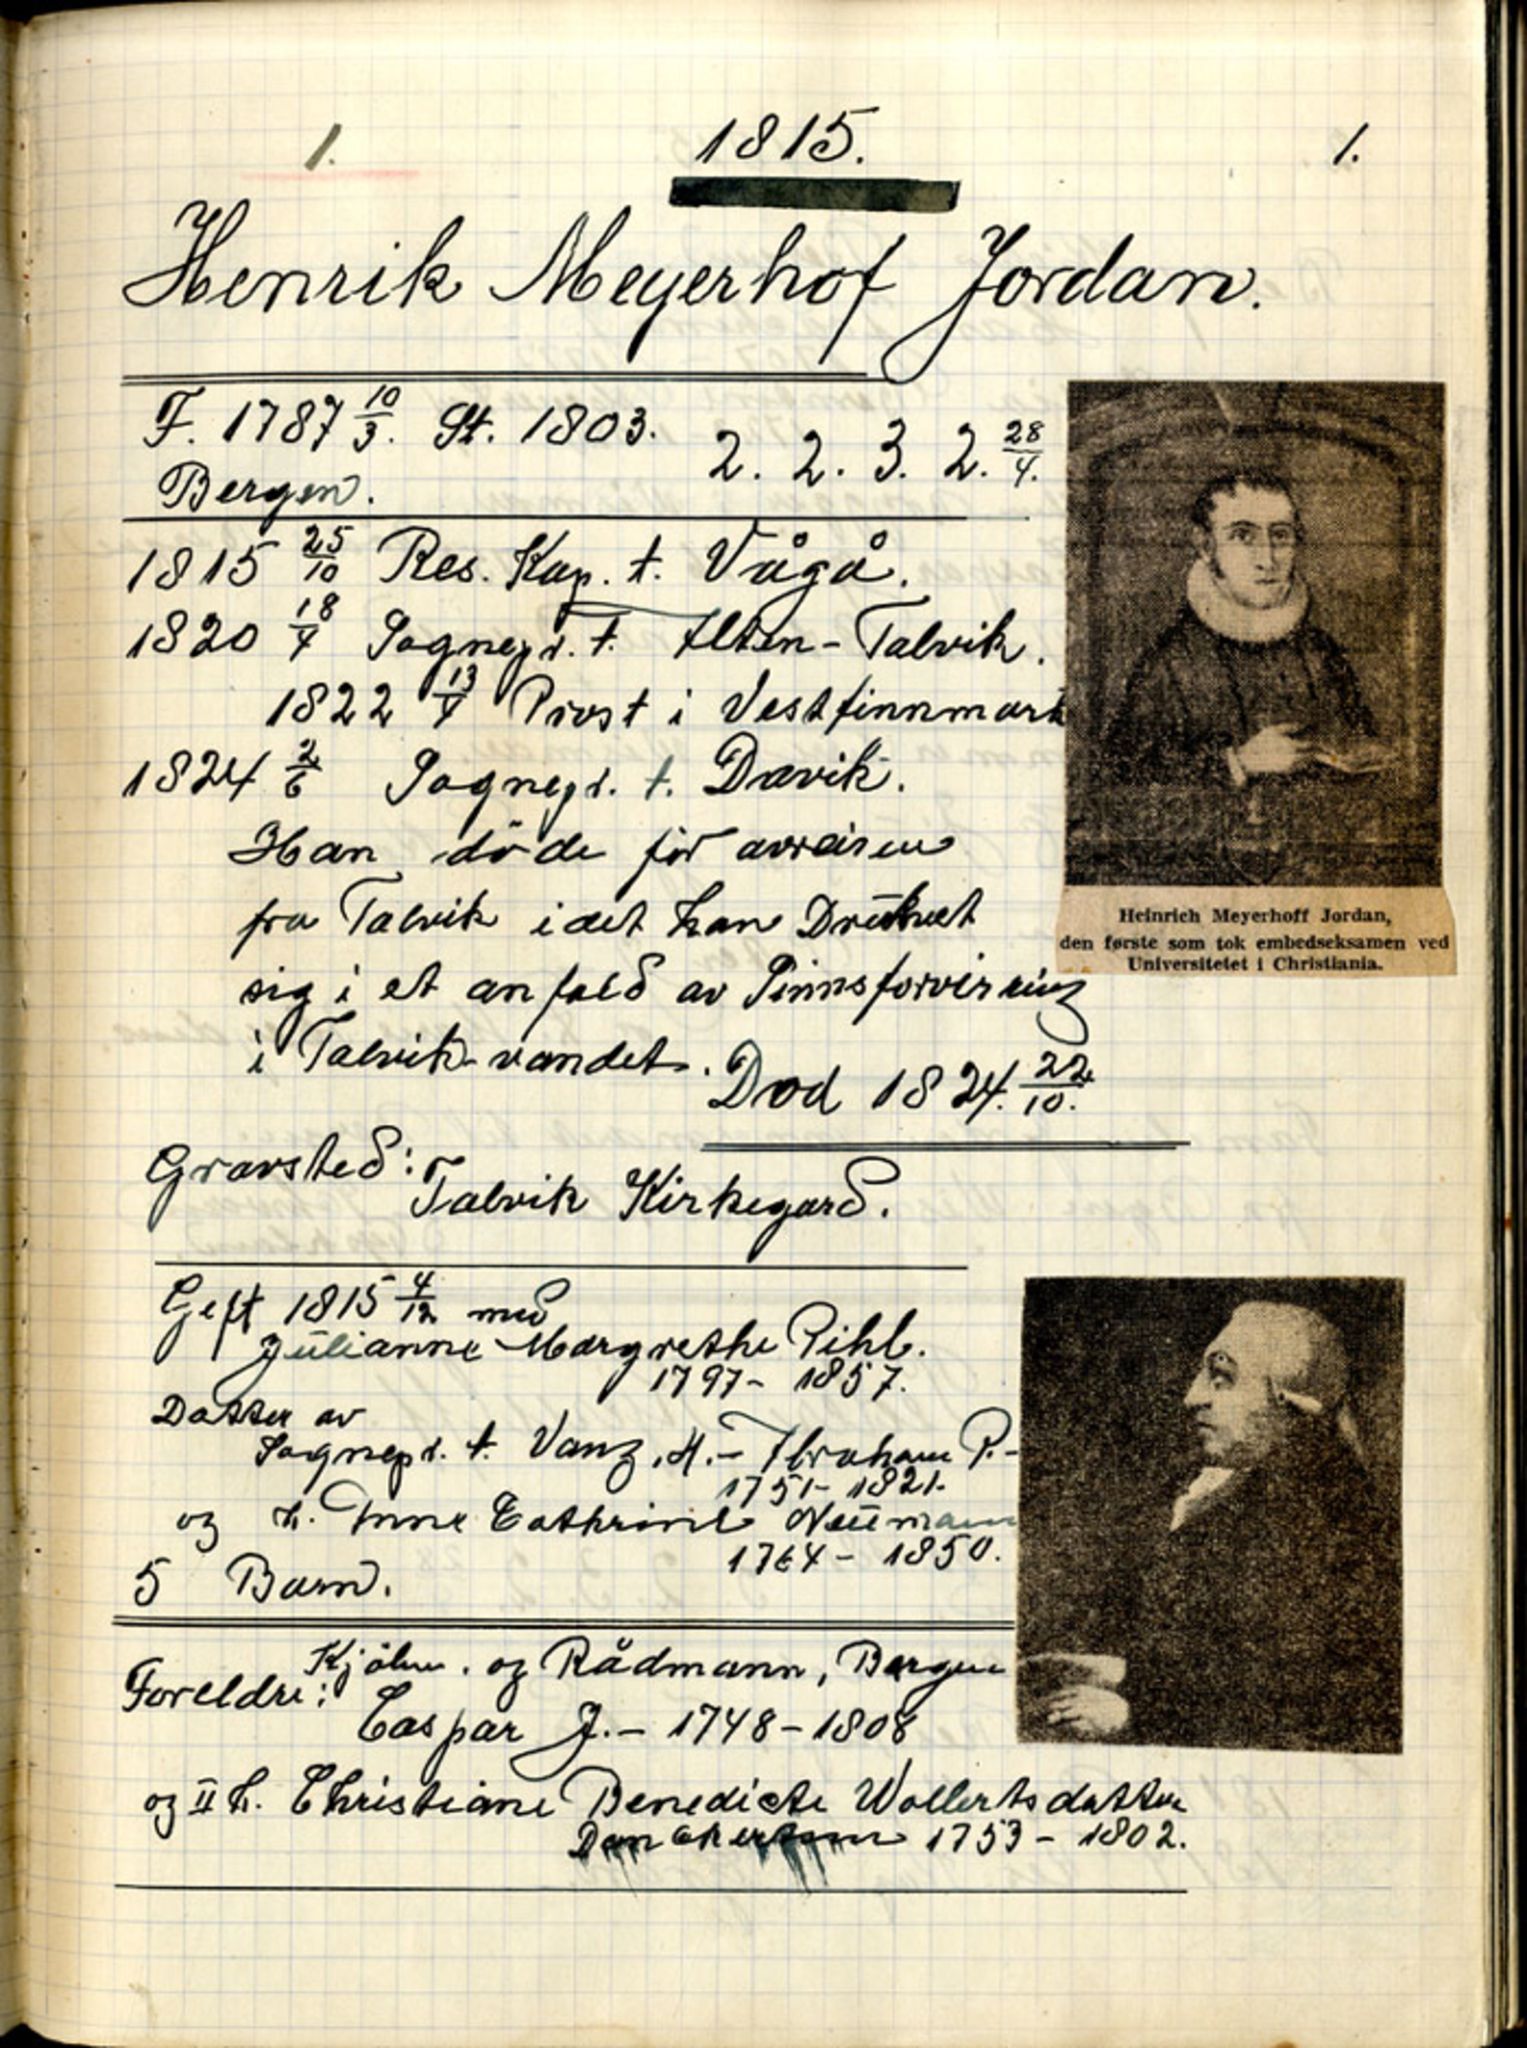 1. 1815. 1.
Henrik Meyerhof Jordan.
F. 1787 10/3. St. 1803. 2. 2. 3. 2. 28/4.
Bergen.
1815 25/10 Res. Kap. t. Vågå.
1820 18/4 Sognepr. t. Alten-Talvik.
1822 13/4 Prost i Vestfinnmark
1824 2/6 Sognepr. t. Davik.
Han døde før avreisen
fra Talvik idet han Druknet
sig i et anfald av Sinnsforvirring
i Talvik-vandet.
Død 1824. 22/10.
Heinrich Meyerhoff Jordan,
den første som tok embedseksamen ved
Universitetet i Christiania.
Gravsted: Talvik Kirkegard.
Gift 1815 4/12 med
Julianne Margrethe Pihl.
1797- 1857.
Datter av
Sognepr. t. Vang, H.- Abraham P.-
1751- 1821.
og h. Anne Cathrine Neumann
1764- 1850.
5 Barn.
Foreldre: Kjøbm. og Rådmann, Bergen
Caspar J.- 1748-1808
og II h. Christiane Benedicte Wollertsdatter
Danckertsen 1753- 1802.